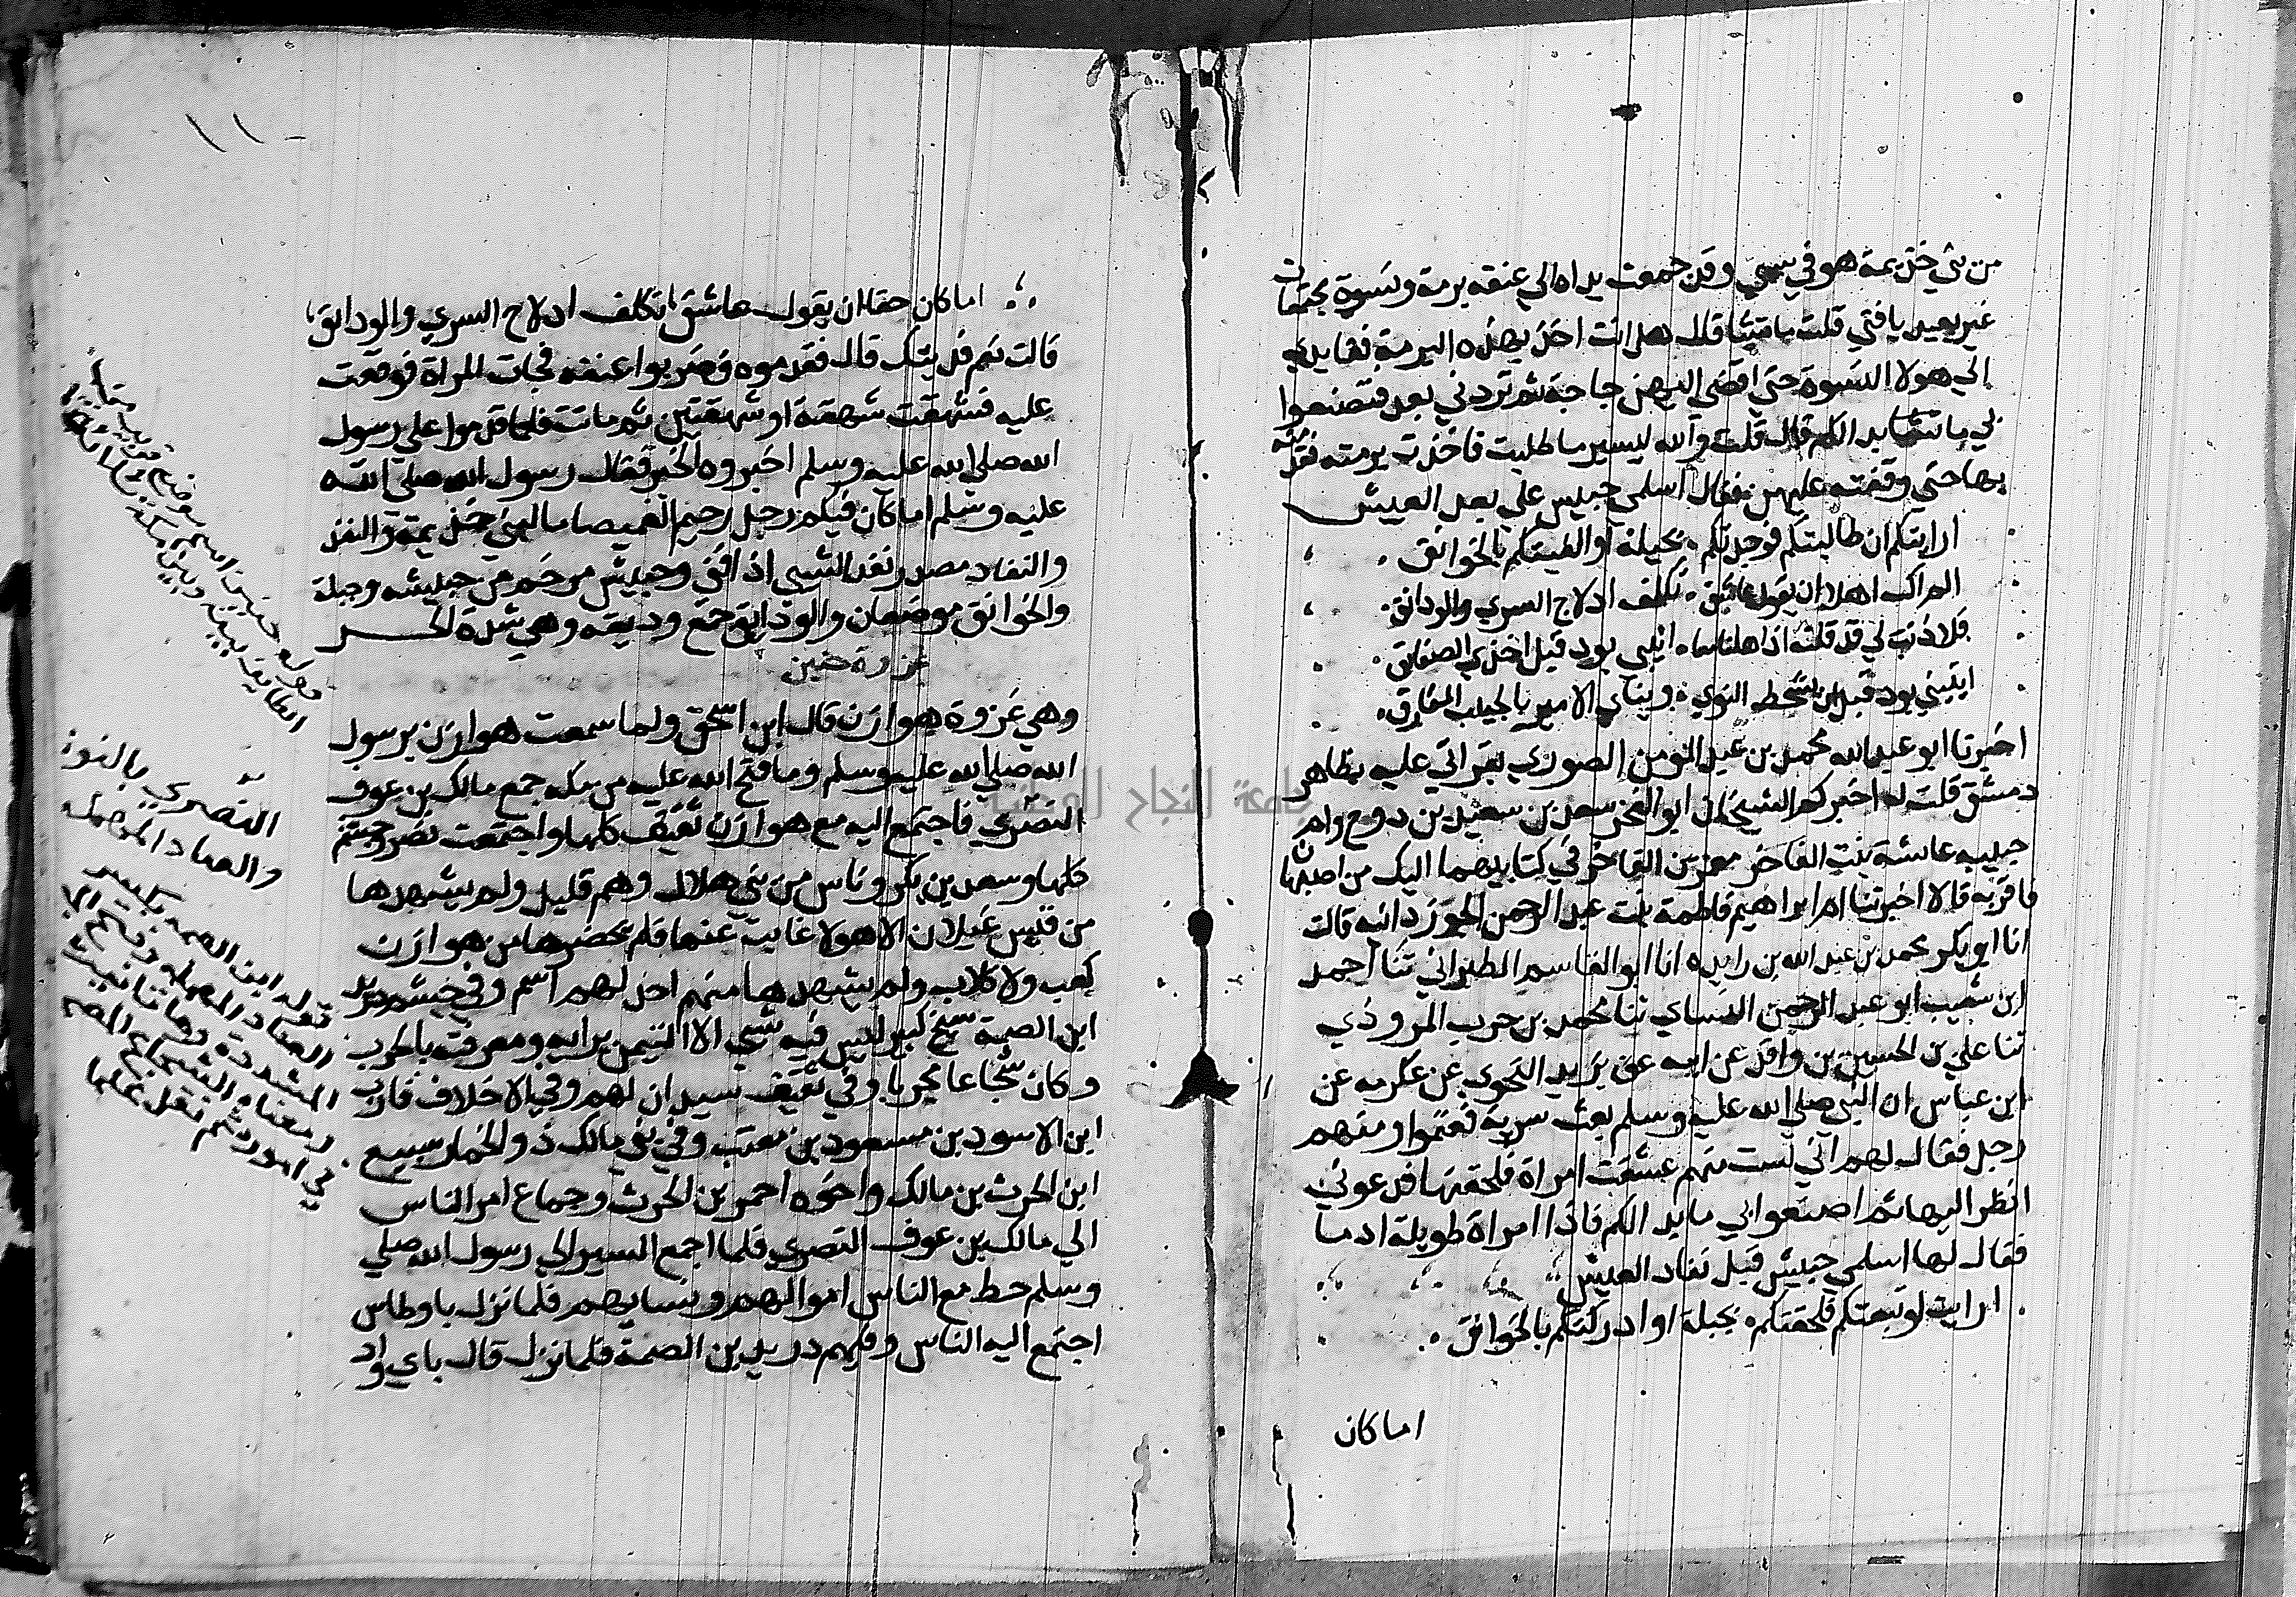 من بني خذيمة هو في سبي وقد جمعت يداه الي عنقه برمة ونسوة مجتمعات
غير بعيد يا فتي قلت ما تشا قال هل انت اخذ بهذه البرمة فقايدي
الي هولا النسوة حتي اقضي اليهن حاجة ثم تردني بعد فتصنعوا
بي ما بدا لكم قال قلت والله ليسير ما طلبت فاخذت برمته فقدته
بها حتي وقفته عليهن فقال اسلمي حبيش علي بعد العيش
اراىتكم ان طالبتكم فوجدتكم . بحيلة او الفيتكم بالخوانق .
الم اك اهلا ان ىقول عاشق . تكلف ادلاج السري والودائق .
فلا ذنب لي قد قلت اذ اهلنا معا . اثيبي بود قبل احدي الصفائق .
اثيبي بود قبل ان تشحط النوي . وينأي الامير بالحبيب المفارق .
اخبرنا ابو عبد الله محمد بن عبد المومن الصوري بقراتي عليه بظاهر
دمشق قلت له اخبركم الشيخان ابو الفخر سعد بن سعيد بن روح وام
حبيبه عائشة بنت الفاخر معمر بن الفاخر في كتابيهما اليك من اصبهان
فاقر به قالا اخبرتنا ام ابراهيم فاطمة بنت عبد الرحمن الجوزدانيه قالت
انا ابو بكر محمد بن عبد الله بن رايده انا ابو القاسم الطبراني ثنا احمد
ابن شعيب ابو عبد الرحمن النساي ثنا محمد بن حرب المروذي
ثنا علي بن الحسين بن واقد عن ابيه عن يزيد النحوي عن عكرمه عن
ابن عباس ان النبي صلي الله عليه وسلم بعث سرية فغنموا ومنهم
رجل فقال لهم اني لست منهم عشقت امراة فلحقتها فدعوني
انظر اليها ثم اصنعوا بي ما بدا لكم فاذا امراة طويلة ادما
فقال لها اسلمي حبيش قبل نفاد العيش
ارايت لو تبعتكم فلحقتكم . بحيلة او ادركتكم بالخوانق .
اما كان
اما كان حقا ان يقول عاشق تكلف ادلاج السري والودائق
قالت نعم فديتك قال فقدموه فضربوا عنقه فجات المراة فوقعت
عليه فشهقت شهقة او شهقتين ثم ماتت فلما قدموا علي رسول
الله صلي الله عليه وسلم اخبروه الخبر فقال رسول الله صلي الله
عليه وسلم اما كان فيكم رجل رحيم الغميصا ما لبني خذيمة والنفذ
والنفاد مصدر نفد الشي اذا افني وحبيش مرخم من حبيشه وحيلة
والخوانق موضعان والودايق جمع وديقه وهي شدة الحر
غزوة حنين
وهي غزوة هوازن قال ابن اسحق ولما سمعت هوازن برسول
الله صلي الله عليه وسلم وما فتح الله عليه من مكه جمع مالك بن عوف
النصري فاجتمع اليه مع هوازن ثقيف كلها واجتمعت نصر وجشم
كلها وسعد بن بكر وناس من بني هلال وهم قليل ولم يشهدها
من قيس عيلان الا هولا غابت عنها فلم يحضرها من هوازن
كعب ولا كلاب ولم يشهدها منهم احد لهم اسم وفي جشم دريد
ابن الصمة شيخ كبير ليس فيه شي الا التيمن برايه ومعرفته بالحرب
وكان شجاعا مجربا وفي ثقيف سيدان لهم وفي الاحلاف قارب
ابن الاسود بن مسعود بن معتب وفي بني مالك ذو الخمار سبيع
ابن الحرث بن مالك واخوه احمر بن الحرث وجماع امر الناس
الي مالك بن عوف النصري فلما اجمع السير الي رسول الله صلي
وسلم حط مع الناس اموالهم ونسايهم فلما نزل باوطاس
اجتمع اليه الناس وفيهم دريد بن الصمة فلما نزل قال باي واد
قوله حنين اسم موضع قريب من
الطايف بينه وبين مكة
النصري بالنون
والصاد المهمله
قوله ابن الصمه بكسر
الصاد المهمله وفتح الميم
المشدده وها تانيث
ومعناه الشجاع المصمم
في امور ثم نقل علما
جامعة النجاح الوطنية